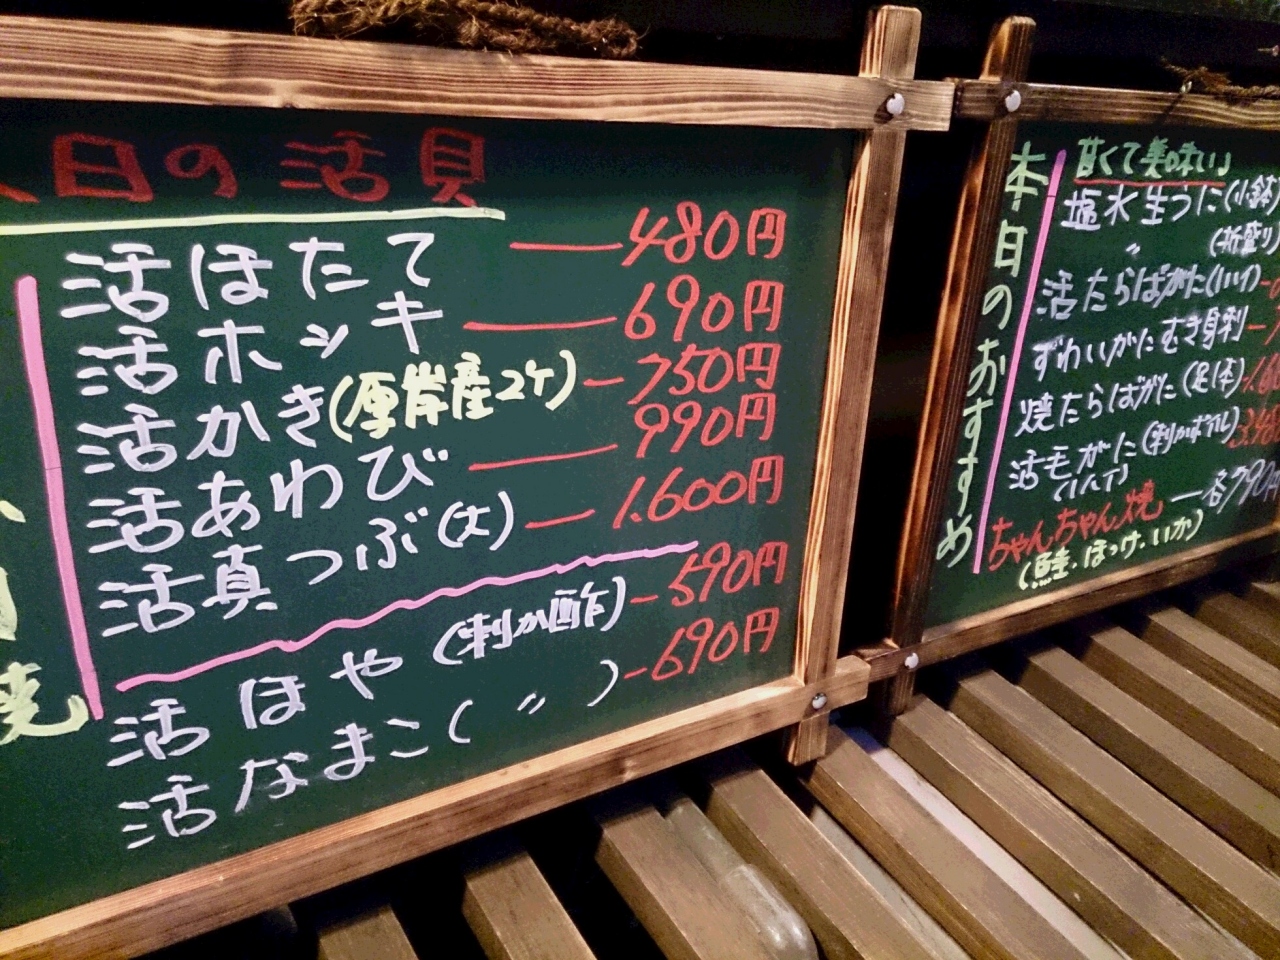 日の活貝
活ほたて 480円
活ホッキ 690円
活かき(厚岸産2ケ) 750円
活あわび 990円
活真つぶ(大) 1.600円
活ほや(刺か酢) 590円
活なまこ(〃) 690円
焼
本日のおすすめ
甘くて美味い」
塩水生うに(小鉢)
〃 (折盛り)
活たらばがに(1ハイ)
ずわいがにむき身刺
焼たらばがに(足1本)
活毛がに(刺かボイル)
(1ハイ)
ちゃんちゃん焼 各790円
(鮭・ほっけ・いか)